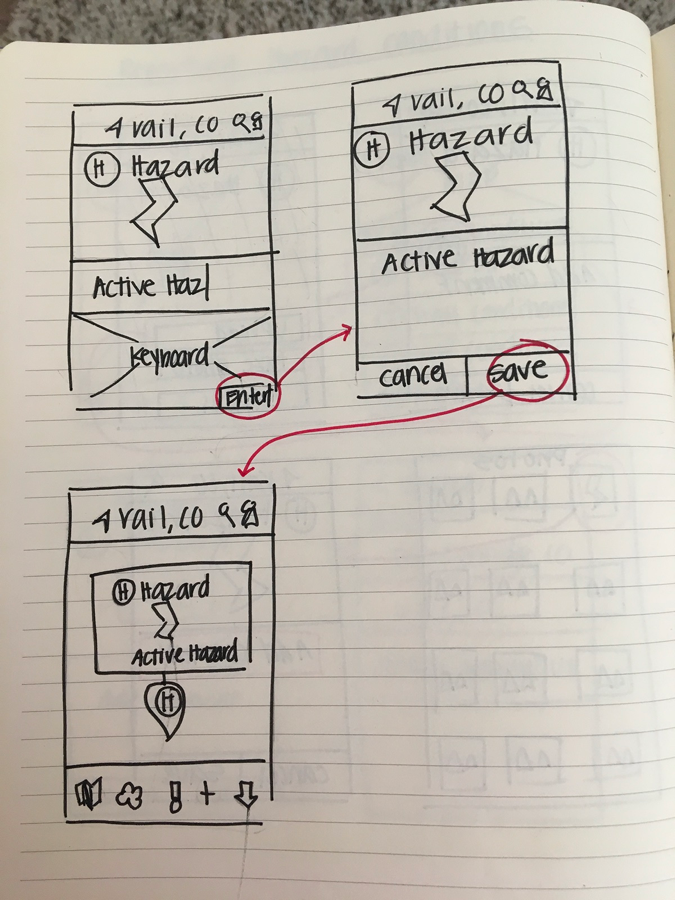 vail, CO
H Hazard
Active Haz
Keyboard
Enter
vail, CO
H Hazard
Active Hazard
cancel save
vail, CO
H Hazard
Active Hazard
H